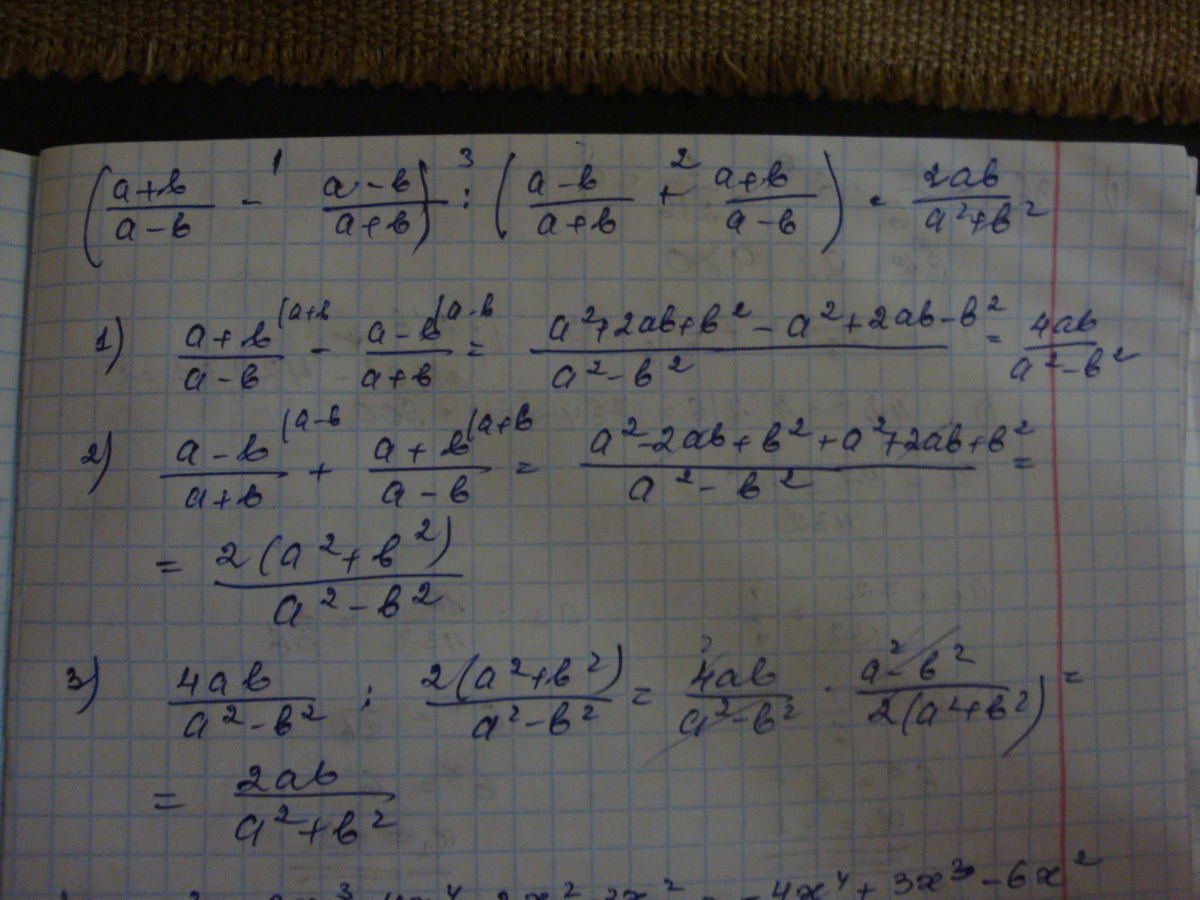 ((a+b)/(a-b) -¹ (a-b)/(a+b)) :³ ((a-b)/(a+b) +² (a+b)/(a-b)) = 2ab/(a²+b²)
1) (a+b)/(a-b) (a+b - (a-b)/(a+b) (a-b = (a²+2ab+b²-a²+2ab-b²)/(a²-b²) = 4ab/(a²-b²)
2) (a-b)/(a+b) (a-b + (a+b)/(a-b) (a+b = (a²-2ab+b²+a²+2ab+b²)/(a²-b²) =
= 2(a²+b²)/(a²-b²)
3) 4ab/(a²-b²) : 2(a²+b²)/(a²-b²) = 4ab/(a²-b²) · (a²-b²)/(2(a²+b²)) =
= 2ab/(a²+b²)
-4x⁴+3x³-6x²